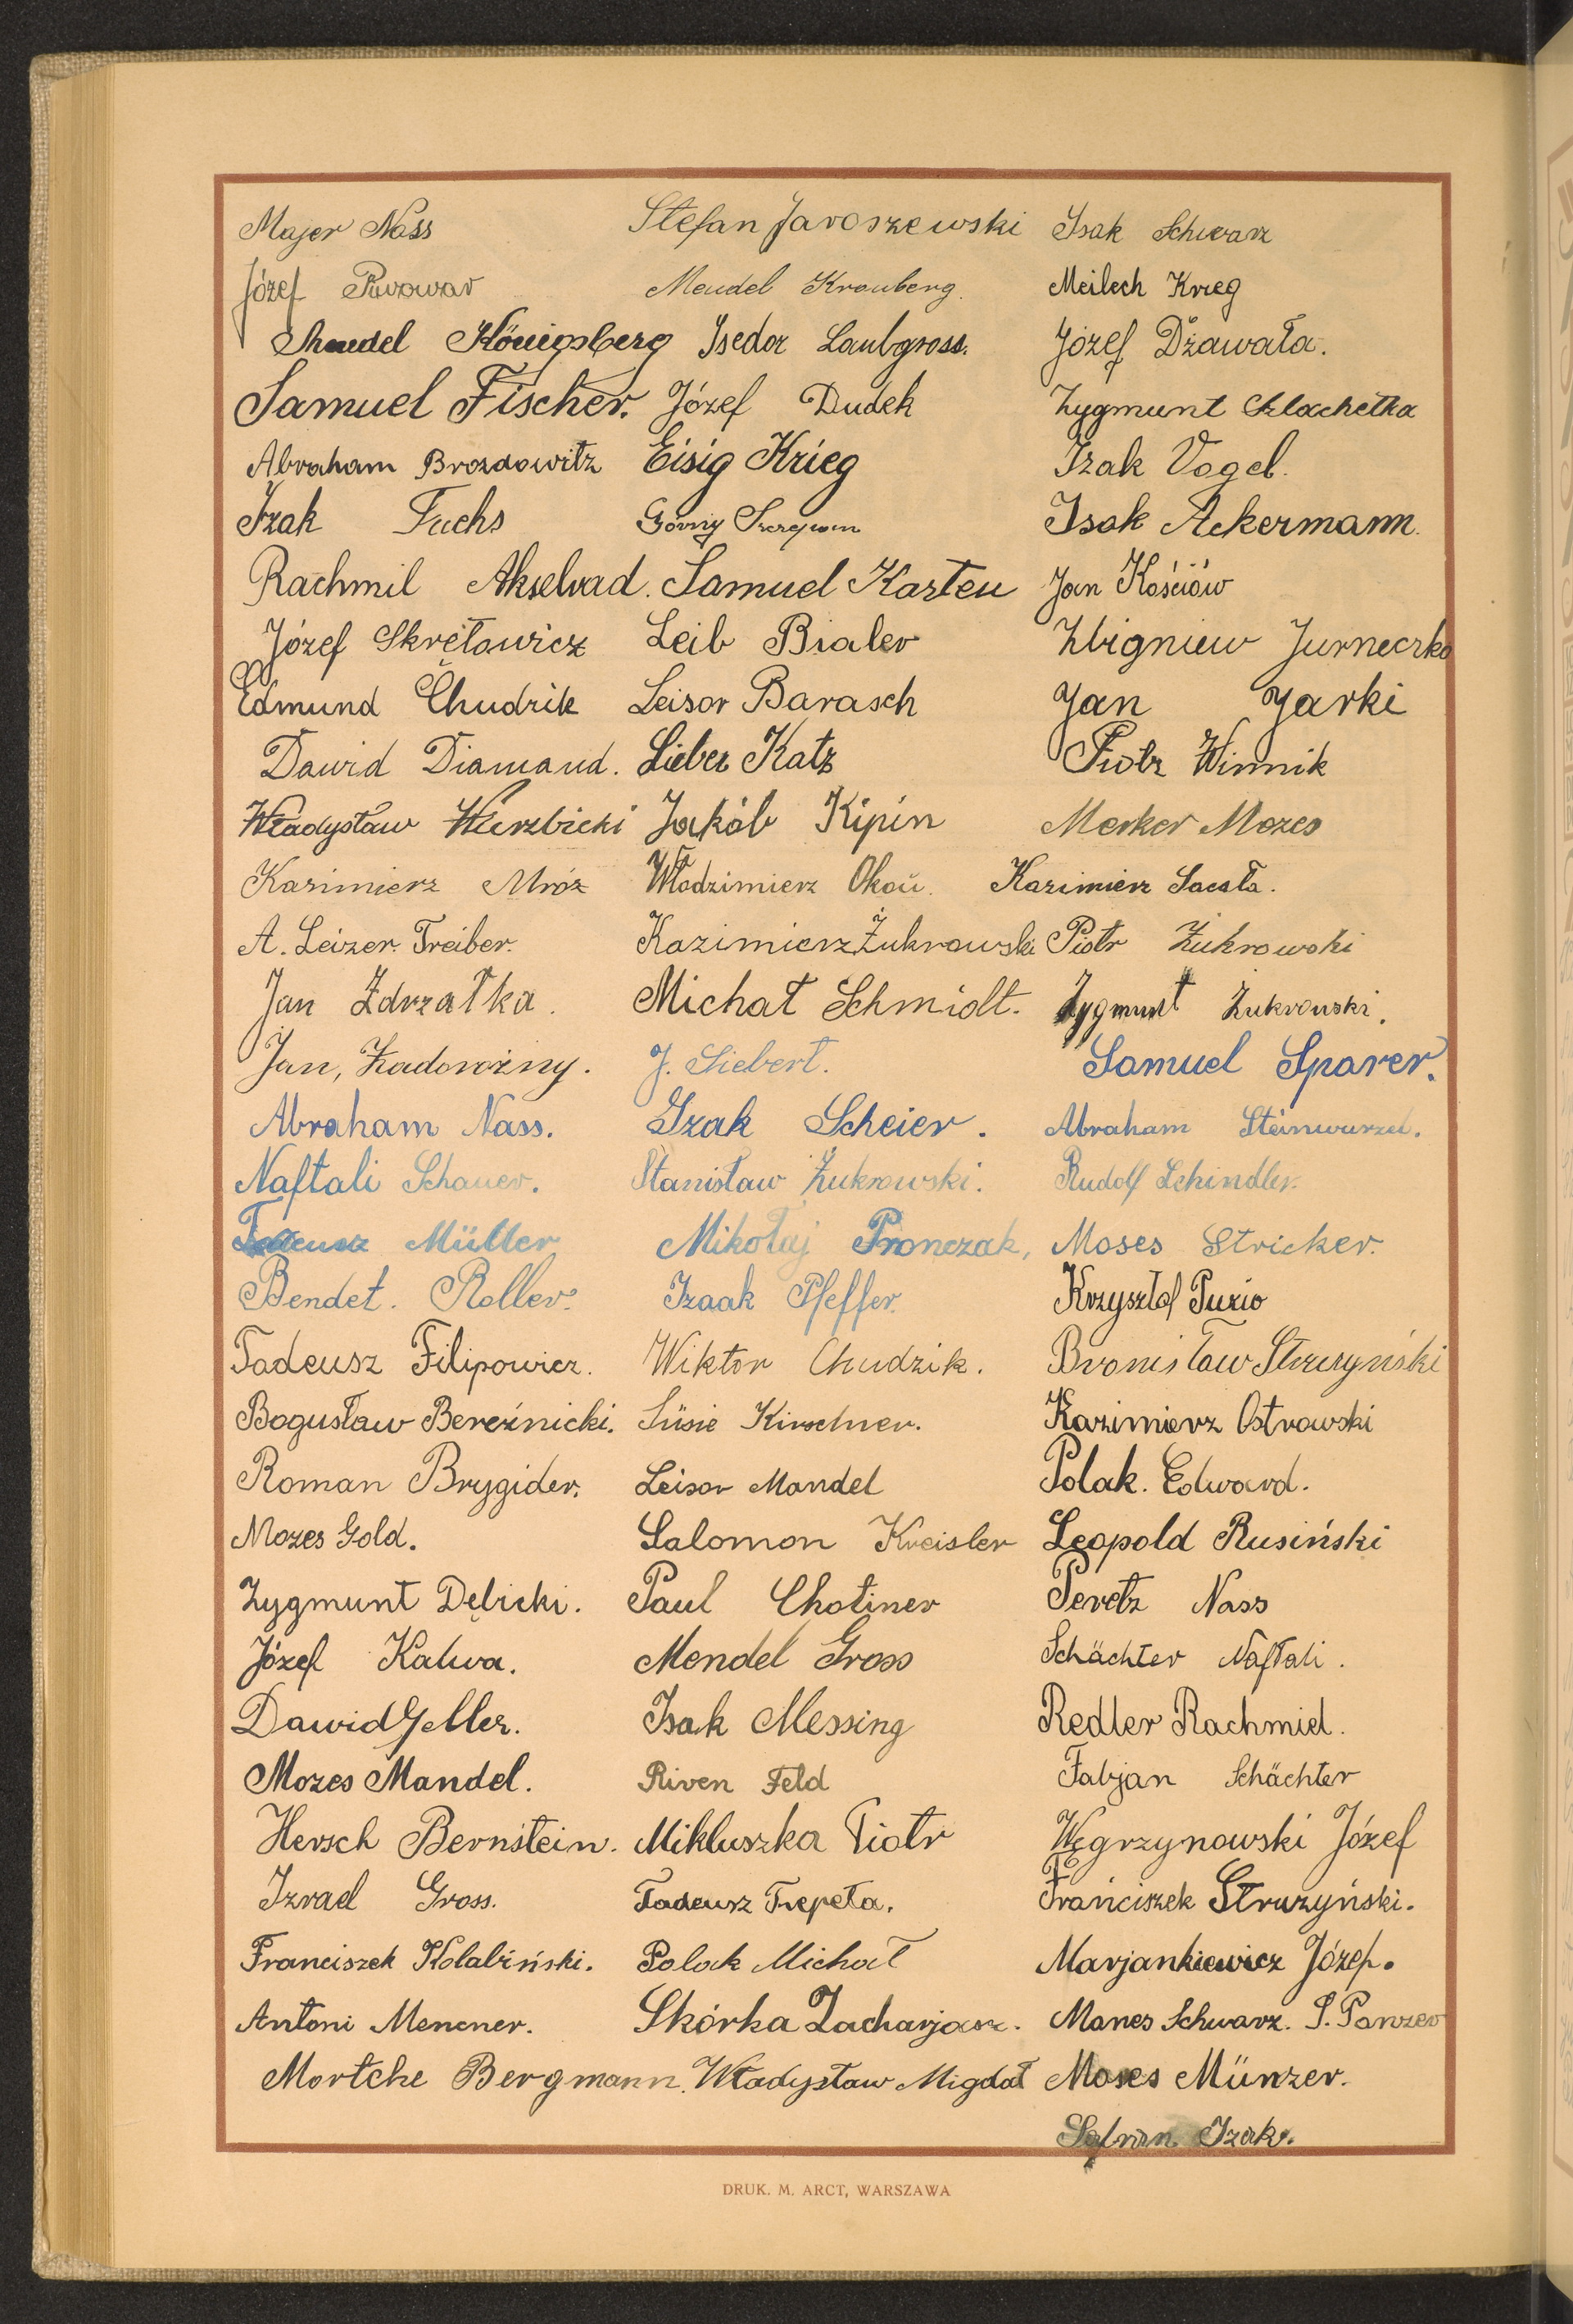 Majer Nass Stefan Jaroszewski Isak Schwarz
Józef Piwowar Mendel Kronberg. Meilech Krieg
Mendel Königsberg Isedor Laubgross. Józef Dżawała.
Samuel Fischer. Józef Dudek Zygmunt Szlachetka
Abraham Brozdowitz Eisig Krieg Izak Vogel.
Izak Fuchs Górny Isak Ackermann.
Rachmil Akselrad. Samuel Karten Jan Kościów
Józef Skrętowicz Leib Bialer Zbigniew Jurneczko
Edmund Chudzik Leisor Barasch Jan Jarki
Dawid Diamand. Lieber Katz Piotr Winnik
Władysław Wierzbicki Jakób Kipin Merker Mozes
Kazimierz Mróz Włodzimierz Okoń. Kazimierz
A. Leizer. Treiber. Kazimierz Żukrowski Piotr Żukrowski
Jan Zdrzałka. Michał Schmidt. Zygmunt Żukrowski.
Jan, Zadorożny. J. Siebert. Samuel Sparer.
Abraham Nass. Izak Scheier. Abraham Steinwurzel.
Naftali Schauer. Stanisław Żukrowski. Rudolf Schindler.
Tadeusz Müller Mikołaj Pronczak, Moses Stricker.
Bendet. Roller. Izaak Pfeffer. Krzysztof Puzio
Tadeusz Filipowicz. Wiktor Chudzik. Bronisław Strużyński
Bogusław Bereźnicki. Süsie Kirschner. Kazimierz Ostrowski
Roman Brygider. Leisor Mandel Polak. Edward.
Mozes Gold. Salomon Kreisler Leopold Rusiński
Zygmunt Dębicki. Paul Chotiner Peretz Nass
Józef Kalwa. Mendel Gross Schächter Naftali.
Dawid Geller. Isak Messing Redler Rachmiel.
Mozes Mandel. Riven Feld Fabjan Schächter
Hersch Bernstein. Mikluszka Piotr Węgrzynowski Józef
Izrael Gross. Tadeusz Trepeta. Franciszek Strużyński.
Franciszek Kolabiński. Polak Michał Marjankiewicz Józef.
Antoni Mencner. Skórka Zacharjasz. Manes Schwarz. S. Panzer
Mortche Bergmann. Władysław Migdał Moses Münzer.
Safrian Izak.
DRUK. M. ARCT, WARSZAWA